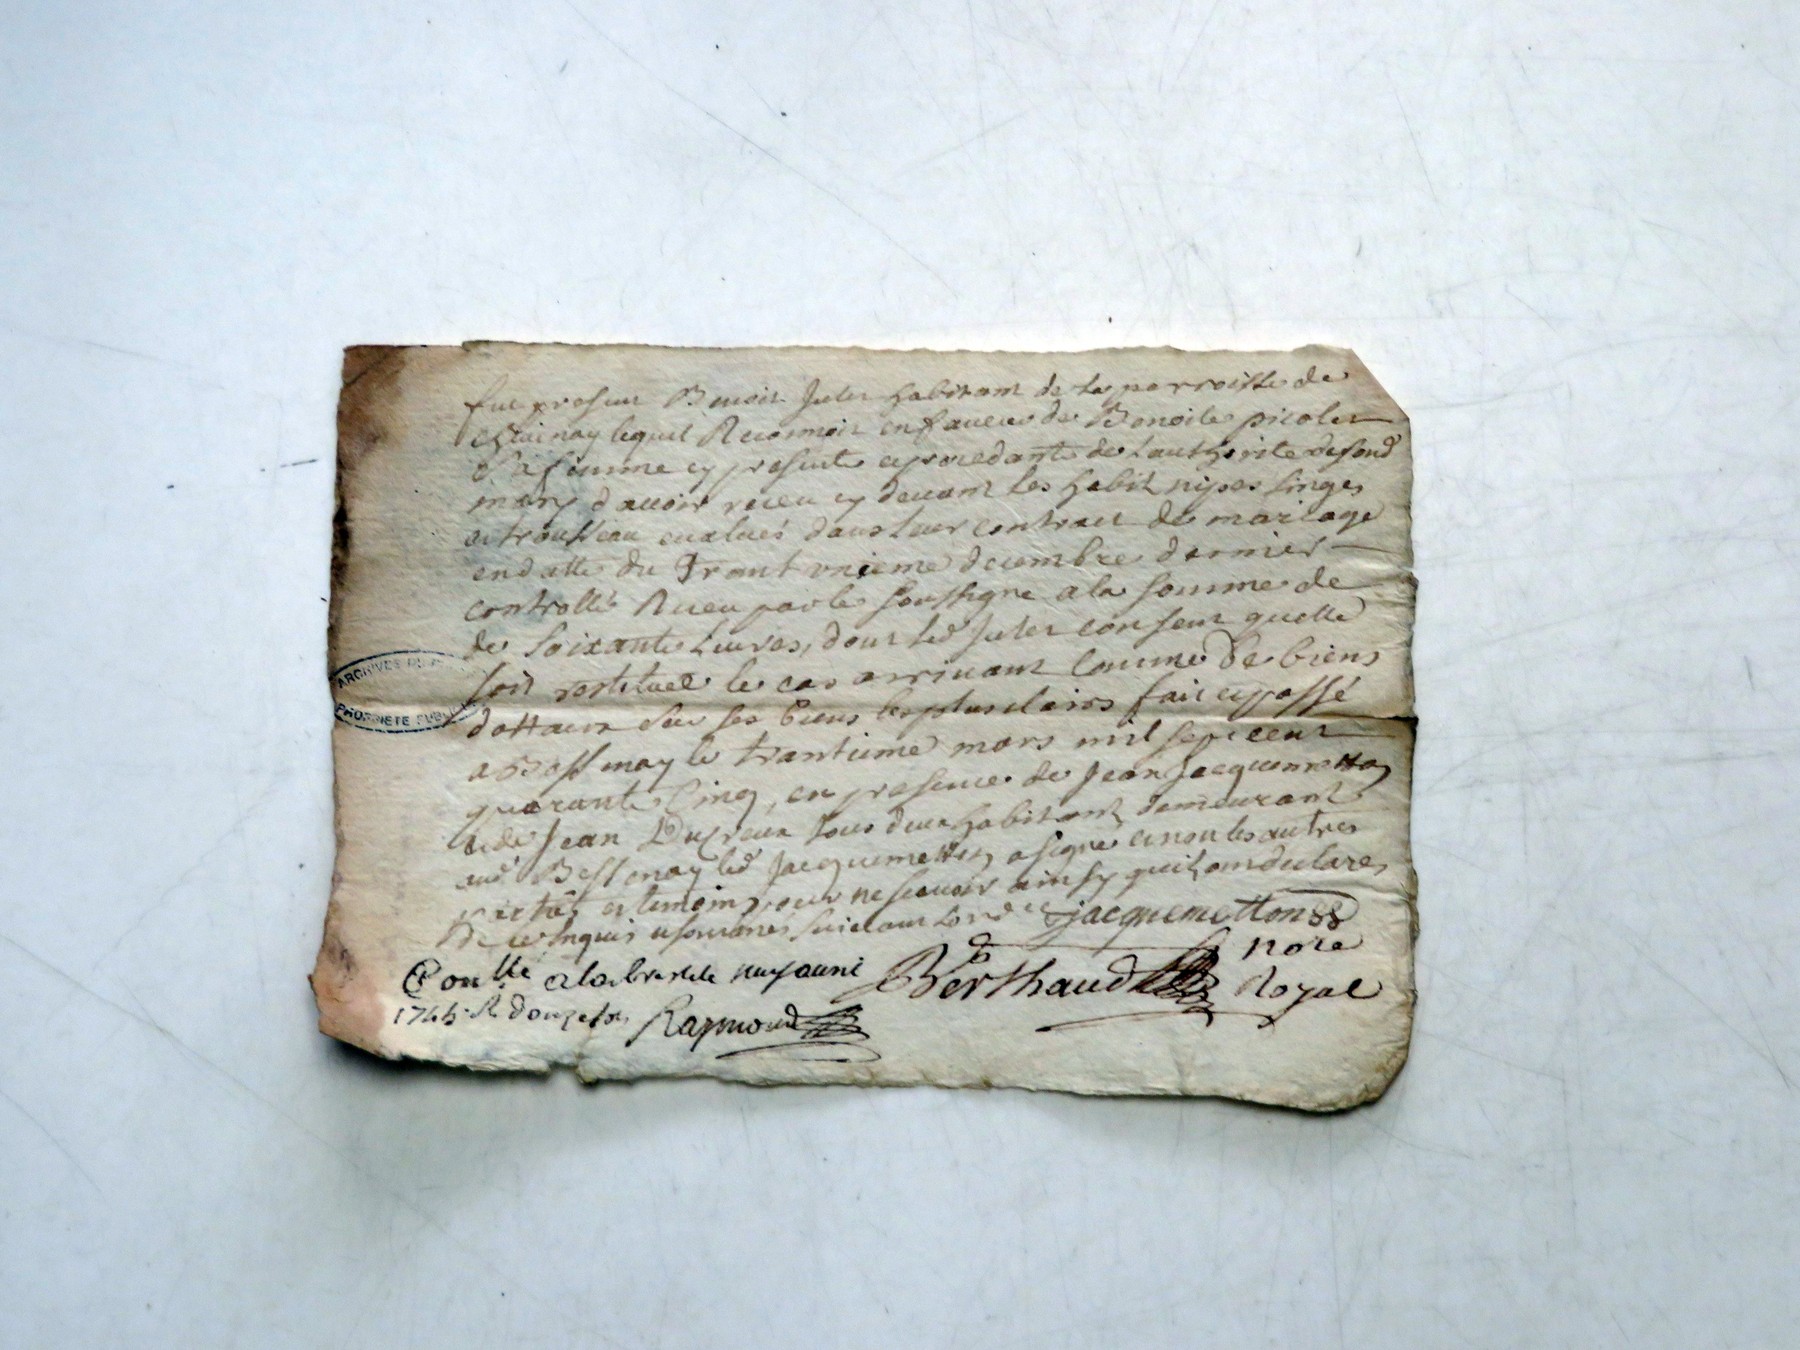 fut present Benoit Juter habitant de la parroisse de
lequel Reconnoit en faveur de Benoite picolet
sa femme cy presente et procedante de l'authorite desond
mary d'avoir receu cy devant les habit nipes linges
et trousseau evalués dans leur contract de mariage
en datte du Trant unieme decembre dernier
controllé Receu par le soussigne a la somme de
de soixante Livres, dont led Juter consent quelle
soit restituee le cas arrivant comme de biens
dottaux sur ses biens les plus clairs fait et passé
a Bessenay le trantieme mars mil sept cent
quarante cinq, en presence de Jean Jacquemetton
et de Jean Ducreux tous deux habitant demeurant
aud Bessenay led Jacquemetton a signé et non les autres
parties et temoins pour ne scavoir ainsy quil ont declare
De ce enquis et sommés suivant lord ce jacquemetton
ARCHIVES PROPRIETE PUBLIQUE
Conllé a la bresle neuf avril
1745 R douze sols Raymond
Berthaud nore
Royal